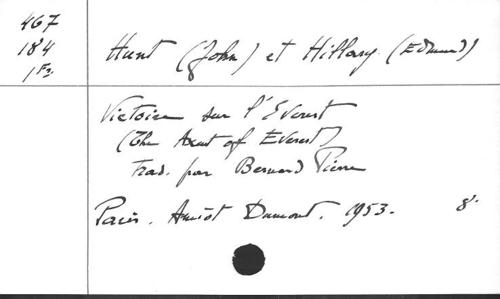 467
184
1 Fz.
Hunt (John) et Hillary (Edmund)
Victoire sur l'Everest
(The Ascent of Everest)
Trad. par Bernard Pierre
Paris. Amiot Dumont. 1953. 8°